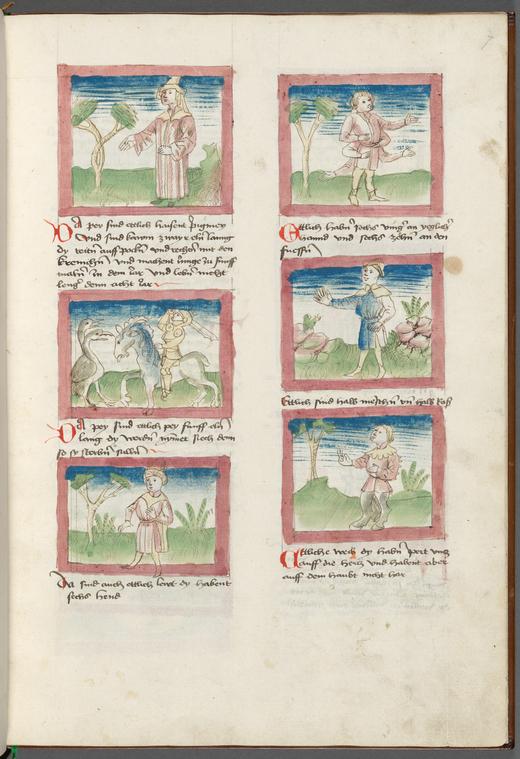 Da pey sind etlich haisent pigmey
Und sind kawm zwayr eln lanng
dy reiten auff
und vechten mit den
krenichn Und machent Junge zu funff
Jarn in dem Jar Und lebn nicht
lenger denn acht Jar
Da pey sind etlich pey funff eln
lanng dy werdn nymer siech denn
so sy sterbn sulln
Da sind auch etlich lewt dy habent
sechs hend
Ettlich habn sechs ving an yeglich
hannd und sechs zehn an den
fuessn
Ettlich sind halb menschn un halb Roß
Ettliche weib dy habn pert untz
auff die
und habent aber
auff dem haubt nicht har
7